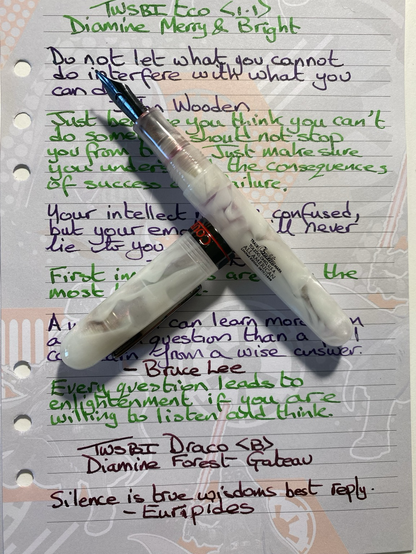 TWSBI Eco <1.1>
Diamine Merry & Bright
Do not let what you cannot
do interfere with what you
can Wooden
Just you think you can't
do should not stop
you from Just make sure
you the consequences
of success failure.
Your intellect confused,
but your never
lie to you
First are the
most
A can learn more
a question than a
from a wise answer.
- Bruce Lee
Every question leads to
enlightenment if you are
willing to listen and think.
TWSBI Draco <B>
Diamine Forest Gateau
Silence is true wisdoms best reply.
- Euripides